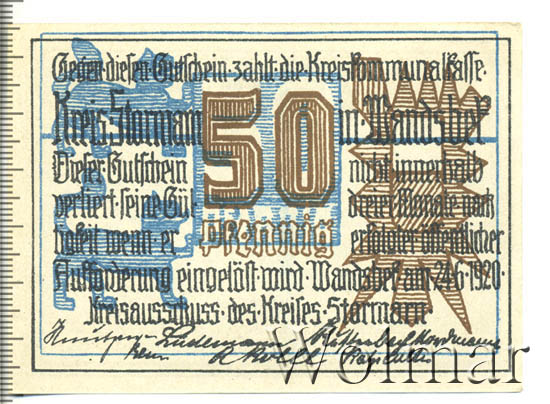 Gegen diesen Gutschein zahlt die Kreiskommunalkasse
Kreis Stormarn in Wandsbek
50
Pfennig
Dieser Gutschein nicht innerhalb
verliert seine Gül- dreier Monate nach
tigkeit wenn er erfolgter öffentlicher
Aufforderung eingelöst wird. Wandsbek am 24.6.1920.
Kreisausschuss des Kreises Stormarn.
Lüdemann
Wolmar